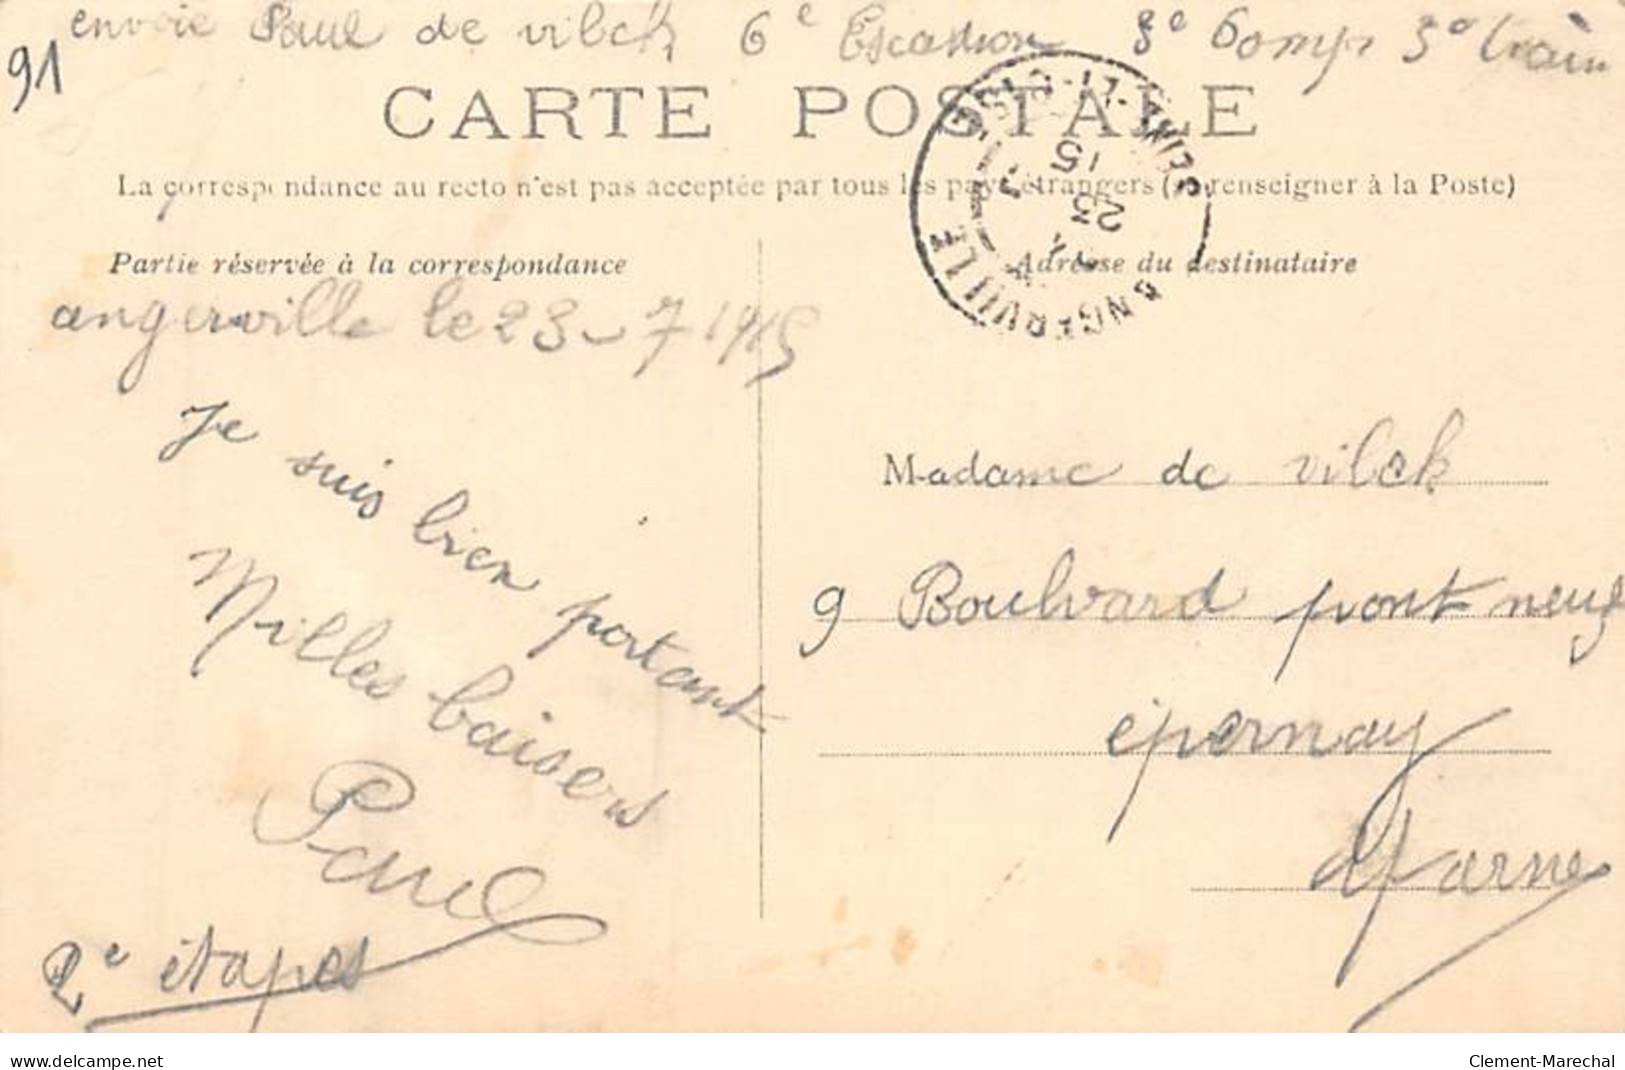 envoie Paul de vilck 6e Escadron 3e Comp 3e train
91
CARTE POSTALE
La correspondance au recto n'est pas acceptée par tous les pays étrangers (se renseigner à la Poste)
Partie réservée à la correspondance
angerville le 23-7 1915
Je suis bien portant
Milles baisers
Paul
2e étapes
Adresse du destinataire
ANGERVILLE
SEINE-ET-OISE
23
7
15
Madame de vilck
9 Boulvard pont neuf
épernay
Marne
www.delcampe.net
Clement-Marechal